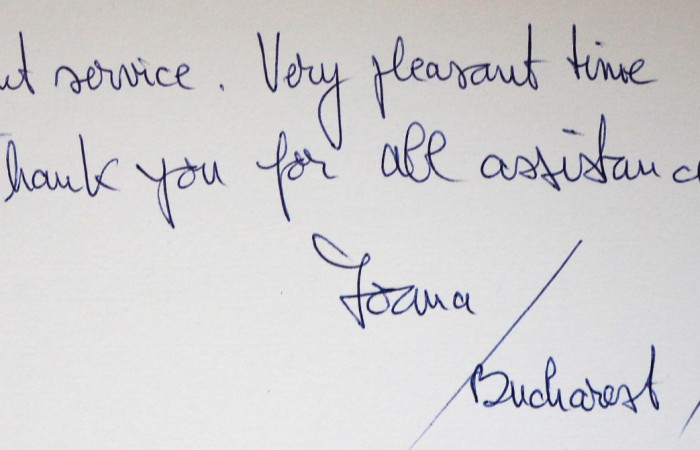 ut service. Very pleasant time
hank you for all assistanc
Ioana
Bucharest